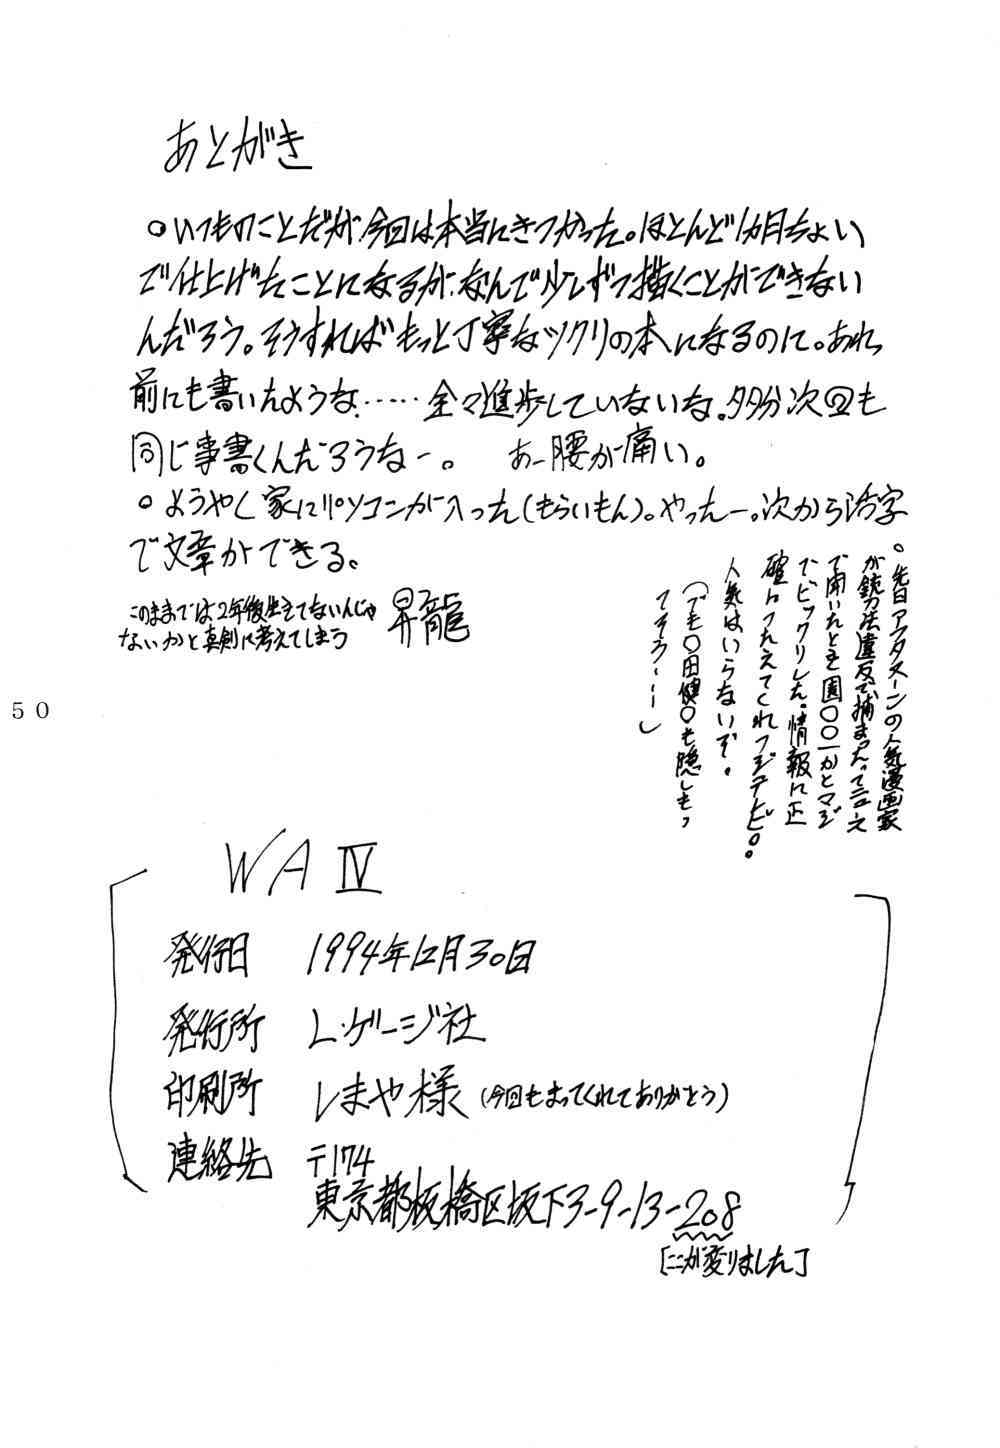 あとがき
○いつものことだが今回は本当にきつかった。ほとんど1カ月ちょい
で仕上げたことになるが、なんで少しずつ描くことができない
んだろう。そうすればもっと丁寧なツクリの本になるのに。あれ
前にも書いたような……全々進歩していないな。多分次回も
同じ事書くんだろうなー。 あー腰が痛い。
○ようやく家にパソコンが入った(もらいもん)。やったー。次から活字
で文章ができる。
このままでは2年後生きてないんじゃ
ないかと真剣に考えてしまう
昇龍
○先日アフタヌーンの人気漫画家
が銃刀法違反で捕まったってニュース
で聞いたとき園○○一かとマジ
でビックリした。情報は正
確につたえてくれフジテレビ。
人気はいらないぞ。
(でも○田健○も隠しもっ
てそう…)
50
WA IV
発行日 1994年12月30日
発行所 L・ゲージ社
印刷所 しまや様(今回もまってくれてありがとう)
連絡先 〒174
東京都板橋区坂下3-9-13-208
「ここが変りました」